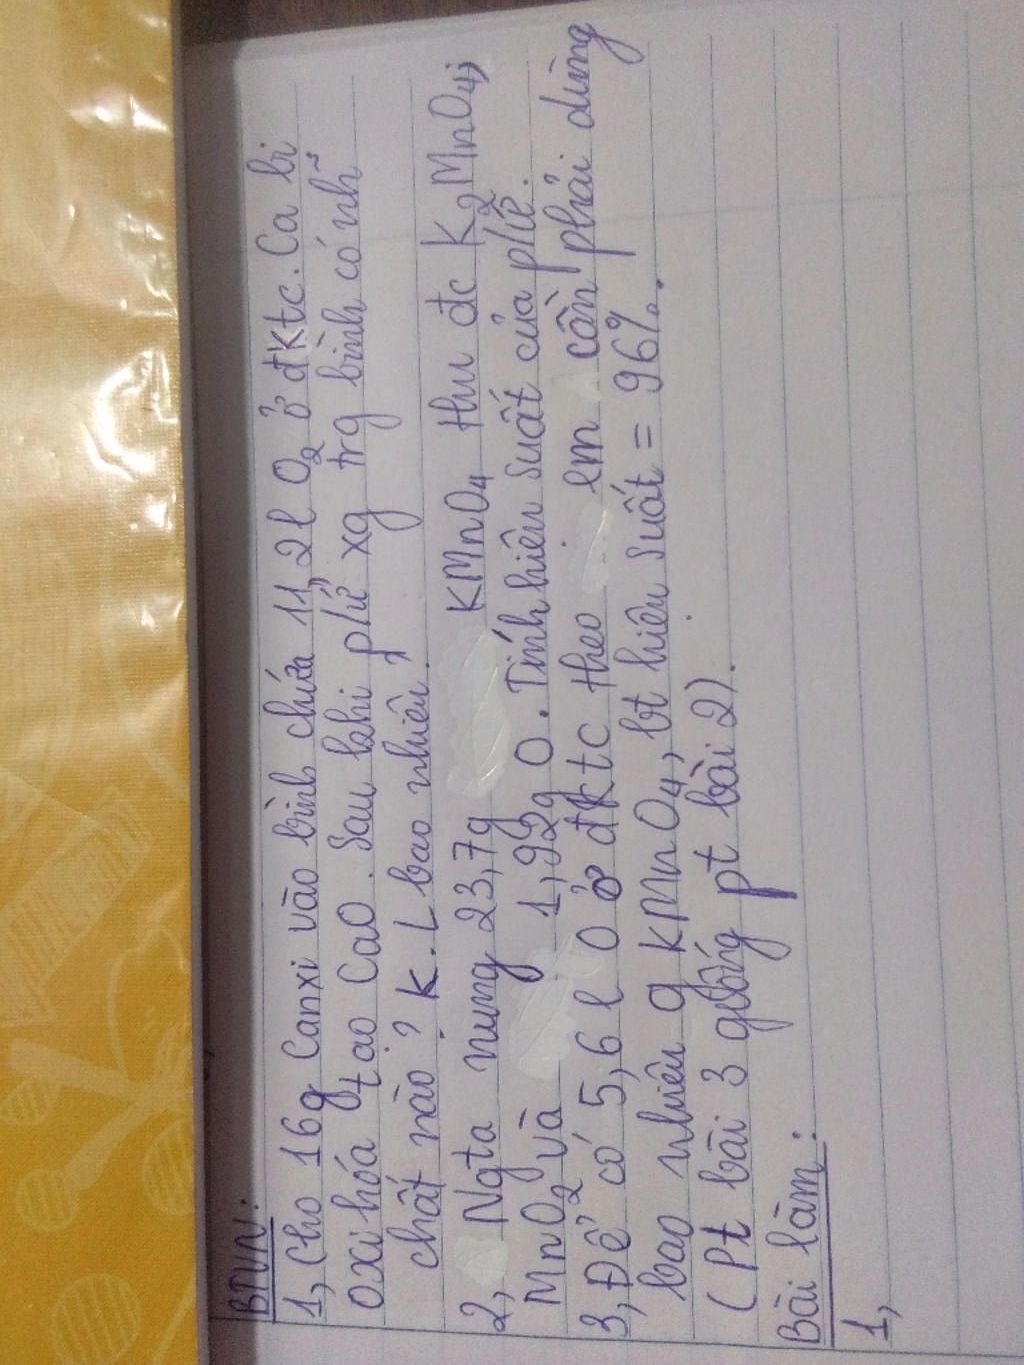 BTVN:
1, Cho 16g Canxi vào bình chứa 11,2l O2 ở đktc. Ca bị
oxi hóa tạo CaO. Sau khi pứ xg trg bình có nh~
chất nào? K.L bao nhiêu?
2, Ngta nung 23,7g KMnO4 thu đc K2MnO4,
MnO2 và 1,92g O. Tính hiệu suất của pứ.
3, Để có 5,6 l O ở đktc theo em cần phải dùng
bao nhiêu g KMnO4, bt hiệu suất = 96%.
(Pt bài 3 giống pt bài 2).
Bài làm:
1,